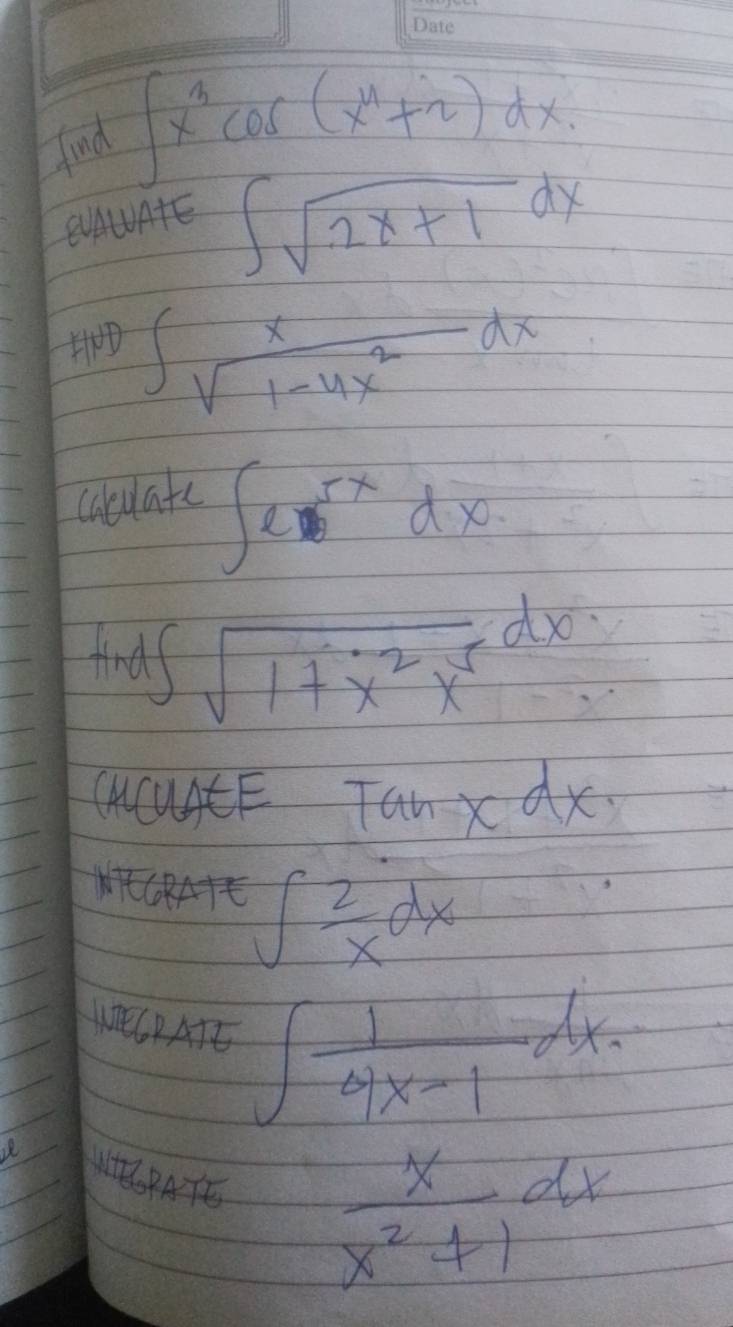 Subject
Date
find ∫ x³ cos (x⁴ + 2) dx.
EVALUATE ∫ √(2x + 1) dx
FIND ∫ x / √(1 - 4x²) dx
Calculate ∫ e⁵ˣ dx.
find ∫ √(1 + x² x⁵) dx.
CALCULATE Tan x dx.
INTEGRATE ∫ 2/x dx
INTEGRATE ∫ 1 / (4x - 1) dx.
INTEGRATE x / (x² + 1) dx